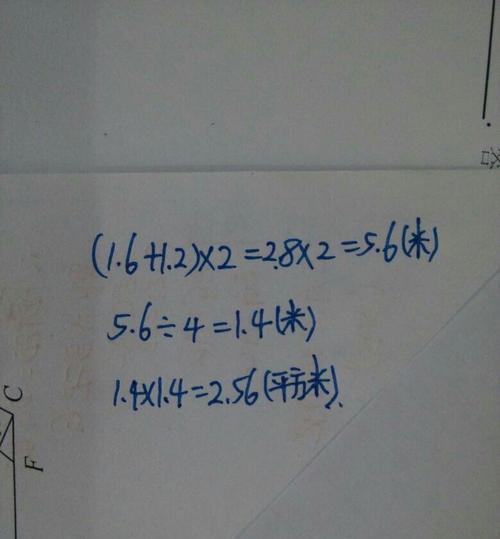 (1.6+1.2)×2=2.8×2=5.6(米)
5.6÷4=1.4(米)
1.4×1.4=2.56(平方米).
C
F